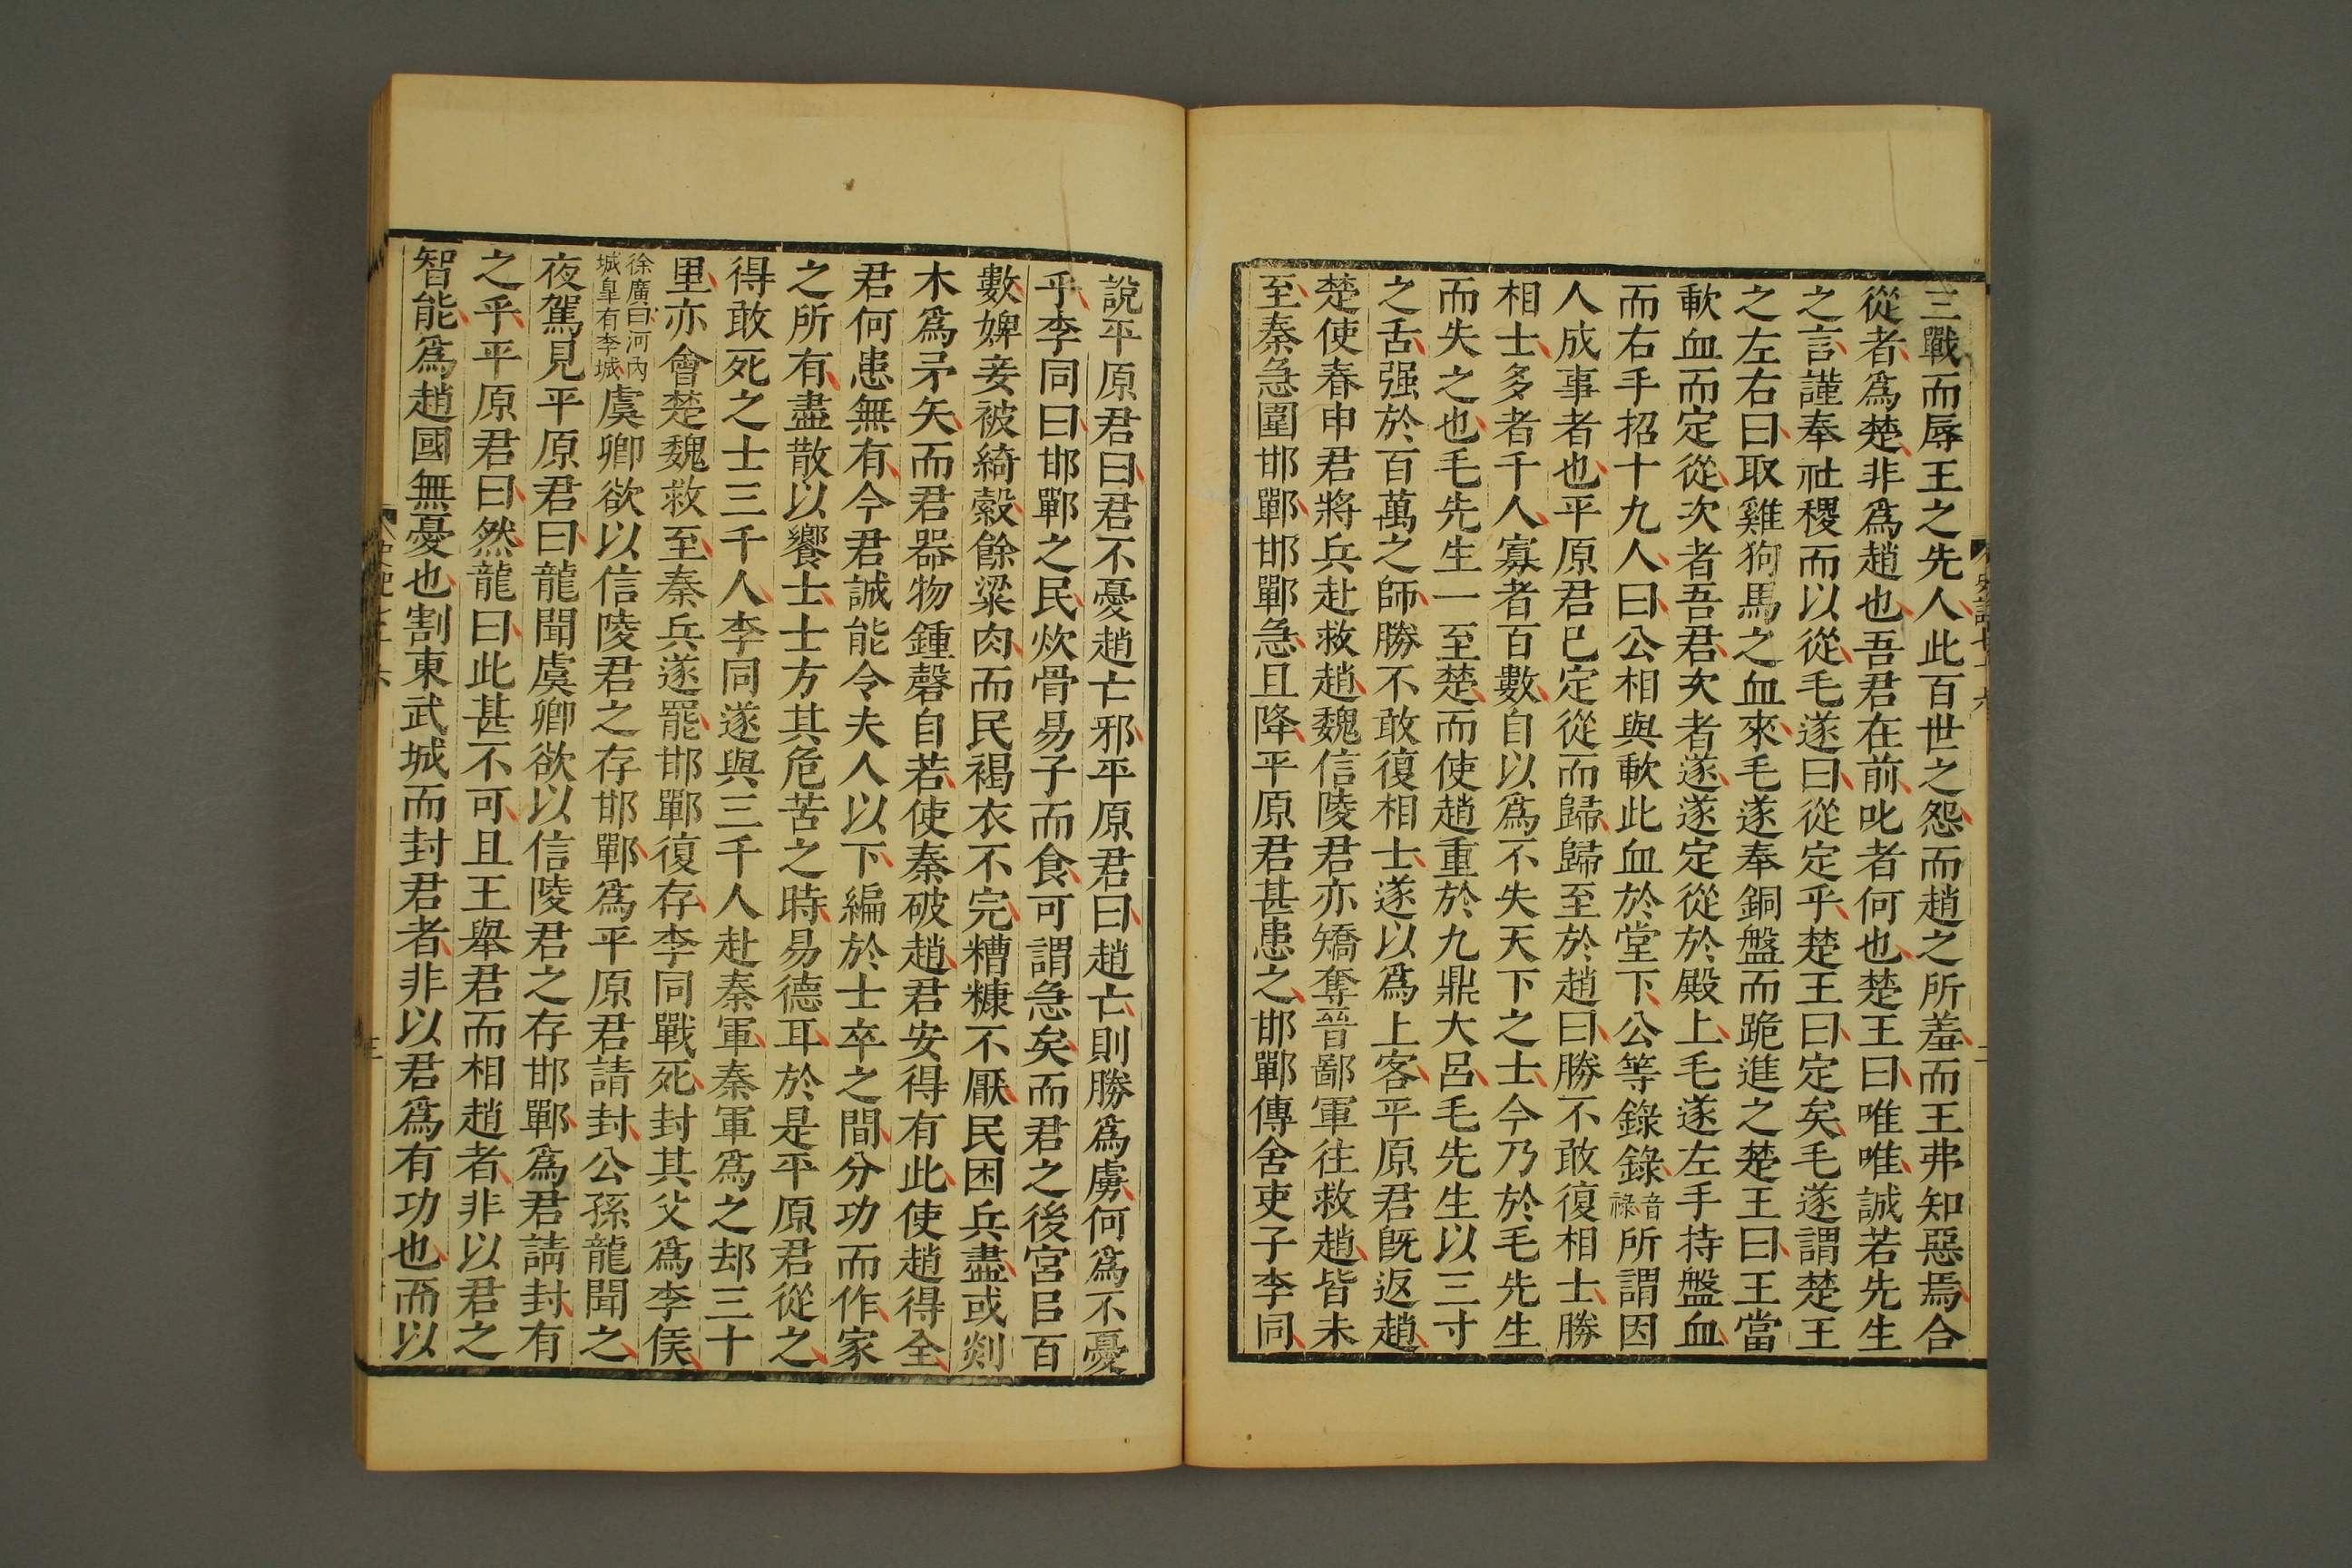 三戰而辱王之先人此百世之怨而趙之所羞而王弗知惡焉合
從者爲楚非爲趙也吾君在前叱者何也楚王曰唯唯誠若先生
之言謹奉社稷而以從毛遂曰從定乎楚王曰定矣毛遂謂楚王
之左右曰取雞狗馬之血來毛遂奉銅盤而跪進之楚王曰王當
歃血而定從次者吾君次者遂遂定從於殿上毛遂左手持盤血
而右手招十九人曰公相與歃此血於堂下公等錄錄音祿所謂因
人成事者也平原君已定從而歸歸至於趙曰勝不敢復相士勝
相士多者千人寡者百數自以爲不失天下之士今乃於毛先生
而失之也毛先生一至楚而使趙重於九鼎大呂毛先生以三寸
之舌强於百萬之師勝不敢復相士遂以爲上客平原君旣返趙
楚使春申君將兵赴救趙魏信陵君亦矯奪晉鄙軍往救趙皆未
至秦急圍邯鄲邯鄲急且降平原君甚患之邯鄲傳舍吏子李同
說平原君曰君不憂趙亡邪平原君曰趙亡則勝爲虜何爲不憂
乎李同曰邯鄲之民炊骨易子而食可謂急矣而君之後宮㠯百
數婢妾被綺縠餘粱肉而民褐衣不完糟糠不厭民困兵盡或剡
木爲矛矢而君器物鍾磬自若使秦破趙君安得有此使趙得全
君何患無有今君誠能令夫人以下編於士卒之間分功而作家
之所有盡散以饗士士方其危苦之時易德耳於是平原君從之
得敢死之士三千人李同遂與三千人赴秦軍秦軍爲之却三十
里亦會楚魏救至秦兵遂罷邯鄲復存李同戰死封其父爲李侯
徐廣曰河內城皐有李城虞卿欲以信陵君之存邯鄲爲平原君請封公孫龍聞之
夜駕見平原君曰龍聞虞卿欲以信陵君之存邯鄲爲君請封有
之乎平原君曰然龍曰此甚不可且王舉君而相趙者非以君之
智能爲趙國無憂也割東武城而封君者非以君爲有功也而以
史記七十六
三